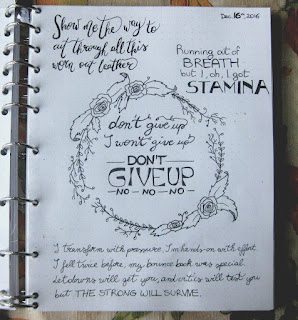 Dec. 16th, 2016
Show me the way to
cut through all this
worn out leather
Running out of
BREATH
but I, oh, I got
STAMINA
don't give up
I won't give up
DON'T
GIVE UP
NO - NO - NO
I transform with pressure, I'm hands-on with effort.
I fell twice before, my bounce back was special.
Letdowns will get you, and critics will test you
but THE STRONG WILL SURVIVE.